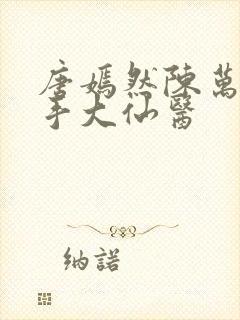 唐嫣然陳萬
手大仙醫
納諾